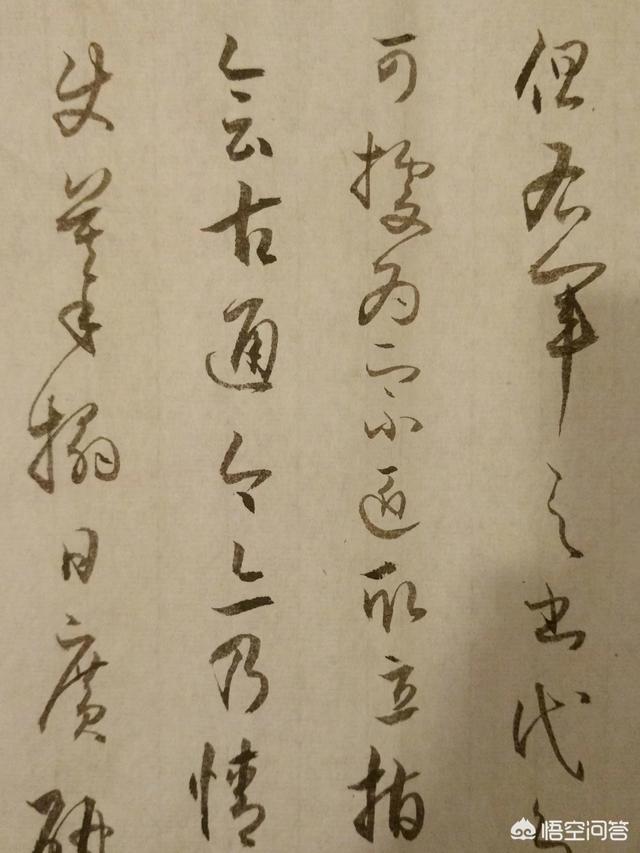 但右軍之書代
可據為宗匠取立指
會古通今亦乃情
使摹搨日廣研
悟空问答